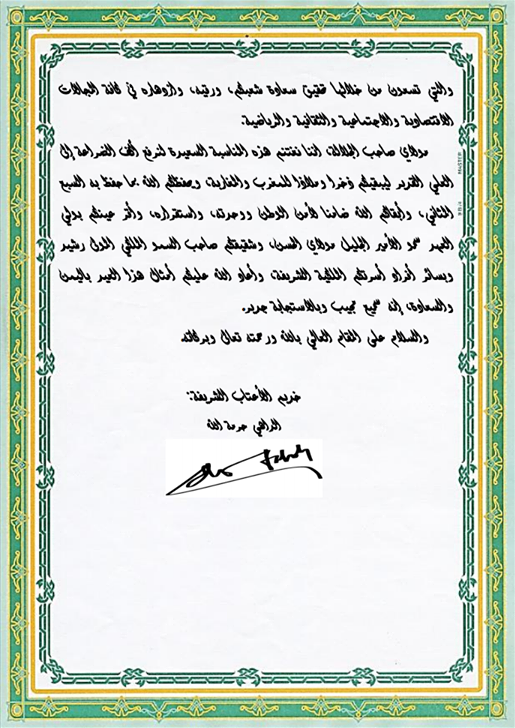 والتي تسعون من خلالها تحقيق سعادة شعبكم، ورقيه، وازدهاره في كافة المجالات
الاقتصادية والاجتماعية والثقافية والرياضية.
مولاي صاحب الجلالة، إننا نغتنم هذه المناسبة السعيدة لنرفع أكف الضراعة إلى
العلي القدير ليبقيكم ذخرا وملاذا للمغرب والمغاربة، ويحفظكم الله بما حفظ به السبع
المثاني، وأبقاكم الله ضامنا لأمن الوطن ووحدته، واستقراره، وأقر عينكم بولي
العهد سمو الأمير الجليل مولاي الحسن، وشقيقكم صاحب السمو الملكي المولى رشيد
وبسائر أفراد أسرتكم الملكية الشريفة، وأعاد الله عليكم أمثال هذا العيد باليمن
والسعادة، إنه سميع مجيب وبالاستجابة جدير.
والسلام على المقام العالي بالله ورحمته تعالى وبركاته
خديم الأعتاب الشريفة:
الداهي حرمة الله